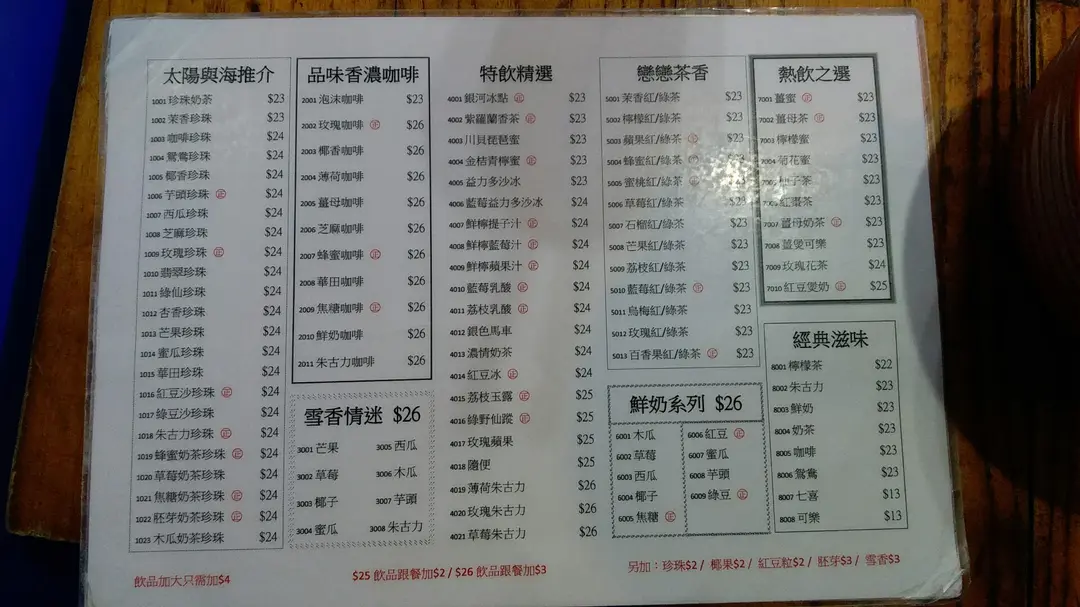 太陽與海推介
1001 珍珠奶茶 $23
1002 茉香珍珠 $23
1003 咖啡珍珠 $24
1004 鴛鴦珍珠 $24
1005 椰香珍珠 $24
1006 芋頭珍珠 正 $24
1007 西瓜珍珠 $24
1008 芝麻珍珠 $24
1009 玫瑰珍珠 正 $24
1010 翡翠珍珠 $24
1011 綠仙珍珠 $24
1012 杏香珍珠 $24
1013 芒果珍珠 $24
1014 蜜瓜珍珠 $24
1015 華田珍珠 $24
1016 紅豆沙珍珠 正 $24
1017 綠豆沙珍珠 $24
1018 朱古力珍珠 正 $24
1019 蜂蜜奶茶珍珠 正 $24
1020 草莓奶茶珍珠 $24
1021 焦糖奶茶珍珠 正 $24
1022 胚芽奶茶珍珠 正 $24
1023 木瓜奶茶珍珠 $24
品味香濃咖啡
2001 泡沫咖啡 $23
2002 玫瑰咖啡 正 $26
2003 椰香咖啡 $26
2004 薄荷咖啡 $26
2005 薑母咖啡 $26
2006 芝麻咖啡 $26
2007 蜂蜜咖啡 正 $26
2008 華田咖啡 $26
2009 焦糖咖啡 正 $26
2010 鮮奶咖啡 $26
2011 朱古力咖啡 $26
雪香情迷 $26
3001 芒果 3005 西瓜
3002 草莓 3006 木瓜
3003 椰子 3007 芋頭
3004 蜜瓜 3008 朱古力
特飲精選
4001 銀河冰點 正 $23
4002 紫羅蘭香茶 正 $23
4003 川貝琵琶蜜 $23
4004 金桔青檸蜜 正 $23
4005 益力多沙冰 $23
4006 藍莓益力多沙冰 $24
4007 鮮檸提子汁 正 $24
4008 鮮檸藍莓汁 正 $24
4009 鮮檸蘋果汁 正 $24
4010 藍莓乳酸 正 $24
4011 荔枝乳酸 正 $24
4012 銀色馬車 $24
4013 濃情奶茶 $24
4014 紅豆冰 正 $24
4015 荔枝玉露 正 $25
4016 綠野仙蹤 正 $25
4017 玫瑰蘋果 $25
4018 隨便 $25
4019 薄荷朱古力 $26
4020 玫瑰朱古力 $26
4021 草莓朱古力 $26
戀戀茶香
5001 茉香紅/綠茶 $23
5002 檸檬紅/綠茶 $23
5003 蘋果紅/綠茶 正 $23
5004 蜂蜜紅/綠茶 正 $23
5005 蜜桃紅/綠茶 正 $23
5006 草莓紅/綠茶 $23
5007 石榴紅/綠茶 $23
5008 芒果紅/綠茶 $23
5009 荔枝紅/綠茶 $23
5010 藍莓紅/綠茶 正 $23
5011 烏梅紅/綠茶 $23
5012 玫瑰紅/綠茶 $23
5013 百香果紅/綠茶 正 $23
鮮奶系列 $26
6001 木瓜 6006 紅豆 正
6002 草莓 6007 蜜瓜
6003 西瓜 6008 芋頭
6004 椰子 6009 綠豆 正
6005 焦糖 正
熱飲之選
7001 薑蜜 正 $23
7002 薑母茶 正 $23
7003 檸檬蜜 $23
7004 菊花蜜 $23
7005 柚子茶 $23
7006 紅棗茶 $23
7007 薑母奶茶 正 $23
7008 薑煲可樂 $23
7009 玫瑰花茶 $24
7010 紅豆煲奶 正 $25
經典滋味
8001 檸檬茶 $22
8002 朱古力 $23
8003 鮮奶 $23
8004 奶茶 $23
8005 咖啡 $23
8006 鴛鴦 $23
8007 七喜 $13
8008 可樂 $13
飲品加大只需加$4
$25 飲品跟餐加$2 / $26 飲品跟餐加$3
另加：珍珠$2 / 椰果$2 / 紅豆粒$2 / 胚芽$3 / 雪香$3